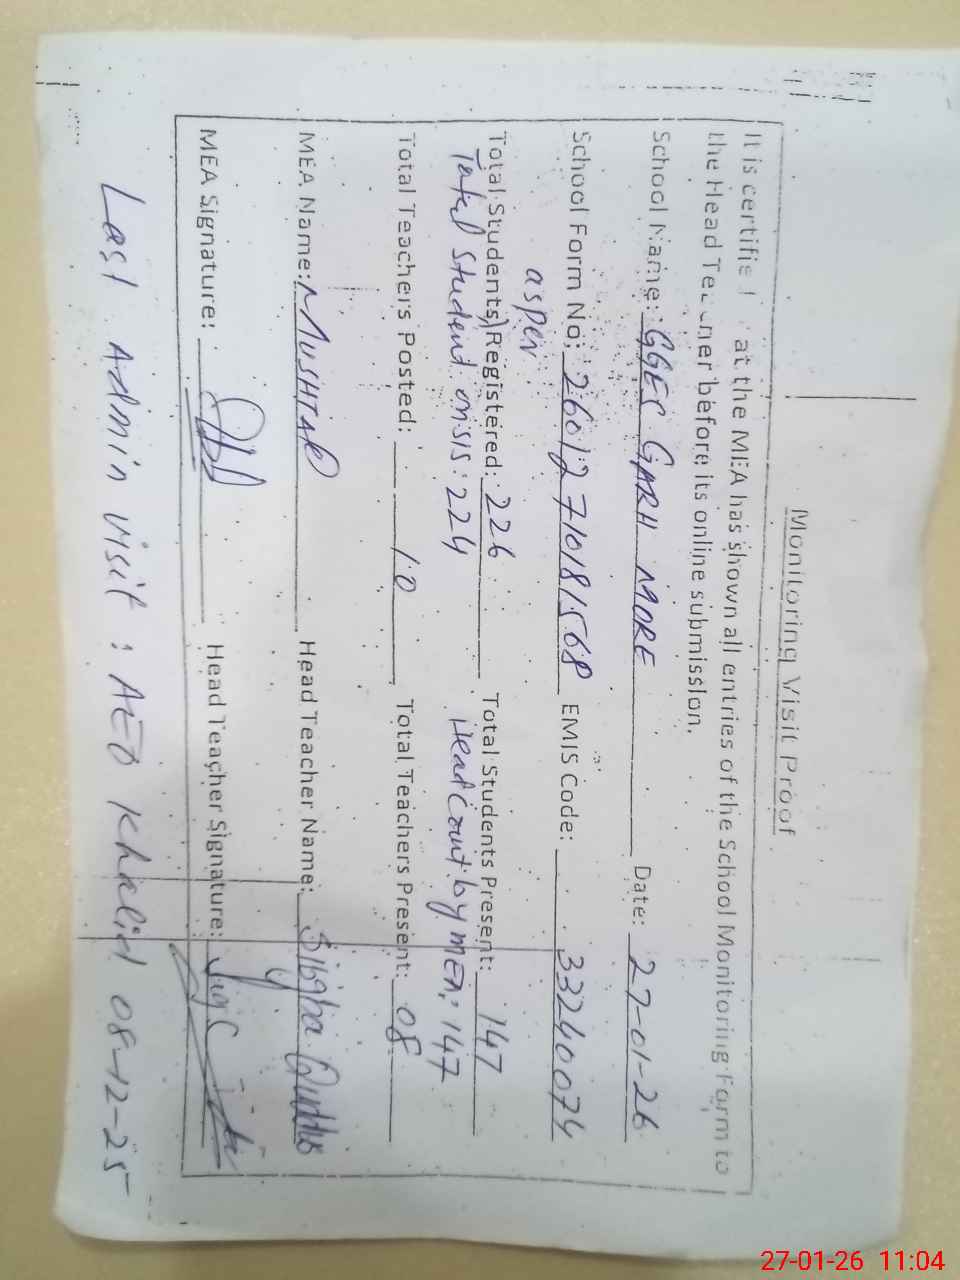 Monitoring Visit Proof
It is certified that the MEA has shown all entries of the School Monitoring Form to
the Head Teacher before its online submission.
School Name: GGES GARH MORE Date: 27-01-26
School Form No: 26012710181568 EMIS Code: 33240074
as per
Total Students Registered: 226 Total Students Present: 147
Total Student on sis: 224 Head Count by MEA: 147
Total Teachers Posted: 10 Total Teachers Present: 08
MEA Name: MUSHTAQ Head Teacher Name:
MEA Signature: Head Teacher Signature:
Last Admin visit: AEO Khalid 08-12-25
27-01-26 11:04